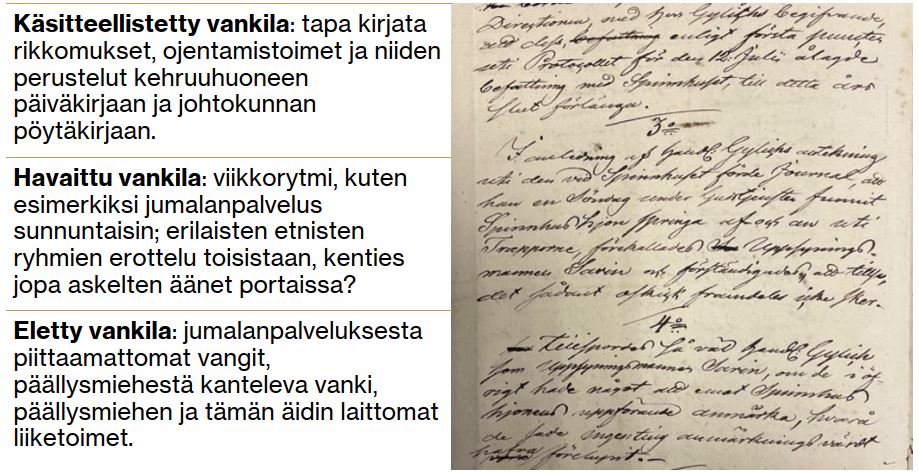 Käsitteellistetty vankila: tapa kirjata
rikkomukset, ojentamistoimet ja niiden
perustelut kehruuhuoneen
päiväkirjaan ja johtokunnan
pöytäkirjaan.
Havaittu vankila: viikkorytmi, kuten
esimerkiksi jumalanpalvelus
sunnuntaisin; erilaisten etnisten
ryhmien erottelu toisistaan, kenties
jopa askelten äänet portaissa?
Eletty vankila: jumalanpalveluksesta
piittaamattomat vangit,
päällysmiehestä kanteleva vanki,
päällysmiehen ja tämän äidin laittomat
liiketoimet.
Directionen, med
enligt första puncten
uti Protocollet för den 12 Julii ålagde
befattning med Spinnhuset, till detta års
slut förlänga.
3o
I anledning af Gylichs anteckning
uti den vid Spinnhuset förde Journal, att
han en Söndag under Gudstjensten funnit
Spinnhus hjon springa af och an uti
Trapporne, förehallades Uppsynings-
mannen Saren och förständigades, att tillse,
det sådant ofkick framdeles icke sker.
4o
Tillspordes så väl Gylich
som Uppsyningsmannen Saren, om de i öf-
rigt hade något att emot Spinnhus
hjonens uppförande anmärka, hvarå
de sade ingenting anmärknings värdt
förelupit.